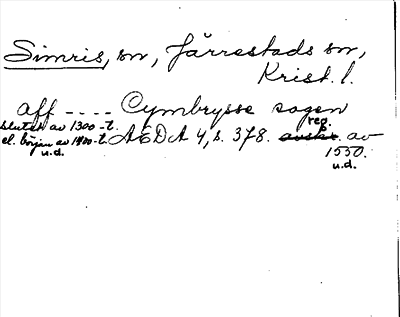 Simris, sn, Järrestads sn,
Krist. l.
aff ---- Cymbrysse sogen
slutet av 1300-t.
el. början av 1400-t. AEDA 4, s. 378. reg. avskr. av
u.d.
1550.
u.d.